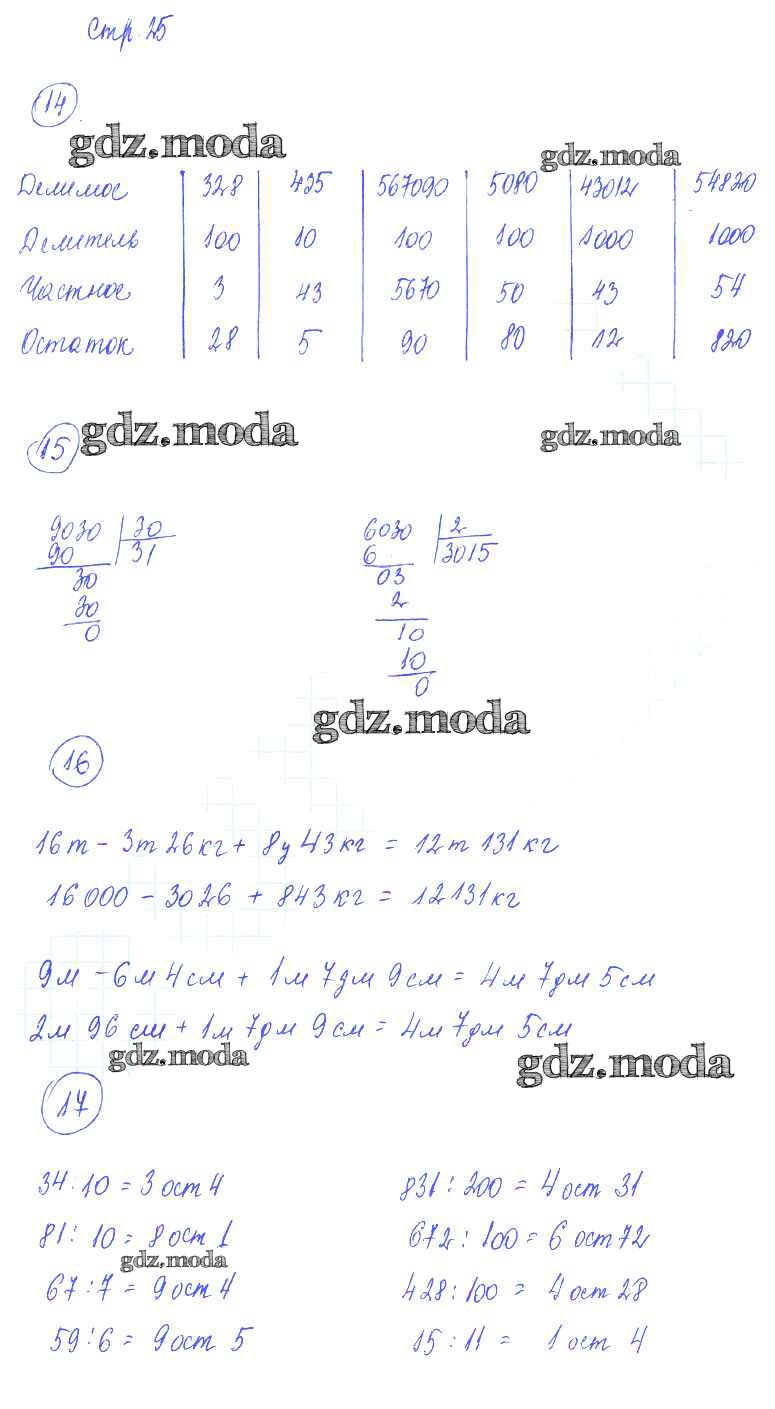 стр. 25
14
gdz.moda
gdz.moda
Делимое 328 435 567090 5080 43012 54820
Делитель 100 10 100 100 1000 1000
Частное 3 43 5670 50 43 54
Остаток 28 5 90 80 12 820
15 gdz.moda
gdz.moda
9030 30
90 31
30
30
0
6030 2
6 3015
03
2
10
10
0
gdz.moda
16
16т - 3т 26кг + 8ц 43кг = 12т 131кг
16000 - 3026 + 843кг = 12131кг
9м - 6м 4см + 1м 7дм 9см = 4м 7дм 5см
2м 96 см + 1м 7дм 9см = 4м 7дм 5см
gdz.moda
gdz.moda
17
34:10 = 3 ост 4
81:10 = 8 ост 1
gdz.moda
67:7 = 9 ост 4
59:6 = 9 ост 5
831:200 = 4 ост 31
672:100 = 6 ост 72
428:100 = 4 ост 28
15:11 = 1 ост 4